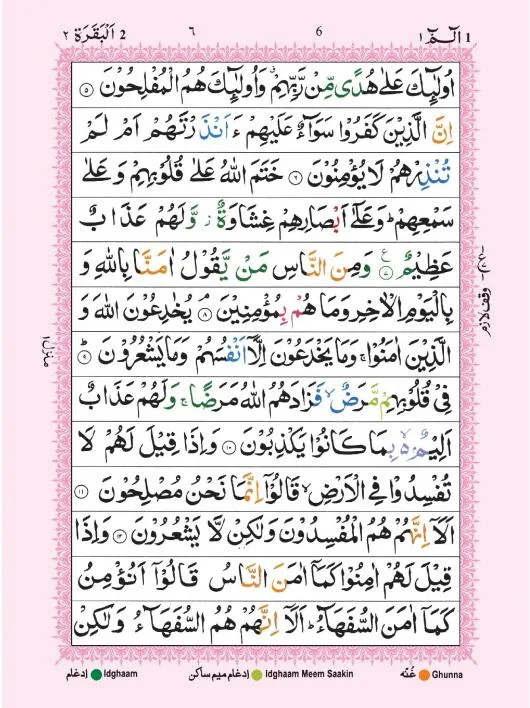 2 اَلْبَقَرَة ٢ ٦ 6 الٓـمّٓ ١ 1
اُولٰٓئِكَ عَلٰى هُدًى مِّنْ رَّبِّهِمْ ۗ وَاُولٰٓئِكَ هُمُ الْمُفْلِحُوْنَ ۝٥
اِنَّ الَّذِيْنَ كَفَرُوْا سَوَآءٌ عَلَيْهِمْ ءَاَنْذَرْتَهُمْ اَمْ لَمْ
تُنْذِرْهُمْ لَا يُؤْمِنُوْنَ ۝٦ خَتَمَ اللّٰهُ عَلٰى قُلُوْبِهِمْ وَ عَلٰى
سَمْعِهِمْ ؕ وَ عَلٰٓى اَبْصَارِهِمْ غِشَاوَةٌ ز وَّ لَهُمْ عَذَابٌ
عَظِيْمٌ ۝٧ ع وَ مِنَ النَّاسِ مَنْ يَّقُوْلُ اٰمَنَّا بِاللّٰهِ وَ
بِالْيَوْمِ الْاٰخِرِ وَمَا هُمْ بِمُؤْمِنِيْنَ ۝٨ م يُخٰدِعُوْنَ اللّٰهَ وَ
الَّذِيْنَ اٰمَنُوْا ۚ وَمَا يَخْدَعُوْنَ اِلَّاۤ اَنْفُسَهُمْ وَمَا يَشْعُرُوْنَ ۝٩
فِيْ قُلُوْبِهِمْ مَّرَضٌ ۙ فَزَادَهُمُ اللّٰهُ مَرَضًا ۚ وَلَهُمْ عَذَابٌ
اَلِيْمٌ ۢ ۙ بِمَا كَانُوْا يَكْذِبُوْنَ ۝١٠ وَاِذَا قِيْلَ لَهُمْ لَا
تُفْسِدُوْا فِي الْاَرْضِ ۙ قَالُوْۤا اِنَّمَا نَحْنُ مُصْلِحُوْنَ ۝١١
اَلَاۤ اِنَّهُمْ هُمُ الْمُفْسِدُوْنَ وَلٰكِنْ لَّا يَشْعُرُوْنَ ۝١٢ وَاِذَا
قِيْلَ لَهُمْ اٰمِنُوْا كَمَاۤ اٰمَنَ النَّاسُ قَالُوْۤا اَنُؤْمِنُ
كَمَاۤ اٰمَنَ السُّفَهَآءُ ؕ اَلَاۤ اِنَّهُمْ هُمُ السُّفَهَآءُ وَلٰكِنْ
وقف لازم
منزل ١
ادغام Idghaam ادغام میم ساکن Idghaam Meem Saakin غُنّه Ghunna